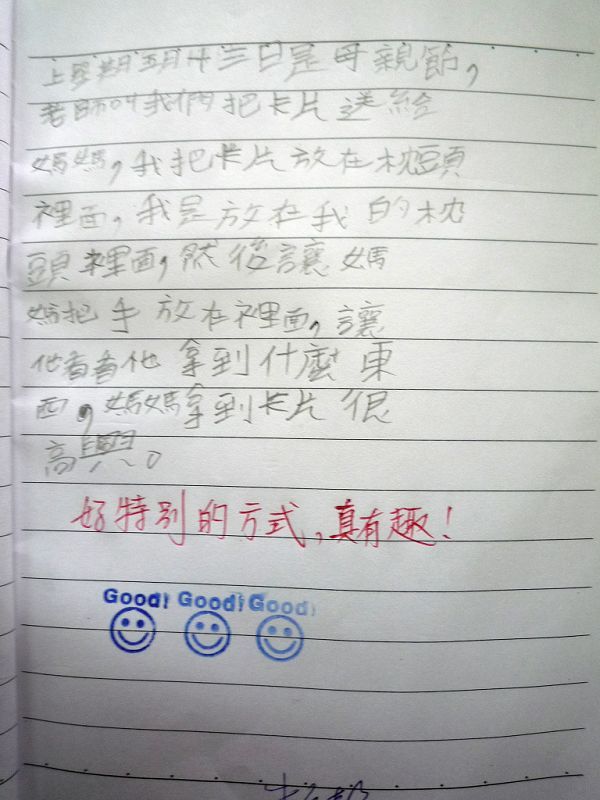 上星期五月十三日是母親節，
老師叫我們把卡片送給
媽媽，我把卡片放在枕頭
裡面，我是放在我的枕
頭裡面，然後讓媽
媽把手放在裡面，讓
他看看他拿到什麼東
西，媽媽拿到卡片很
高興。
好特別的方式，真有趣！
Good! Good! Good!